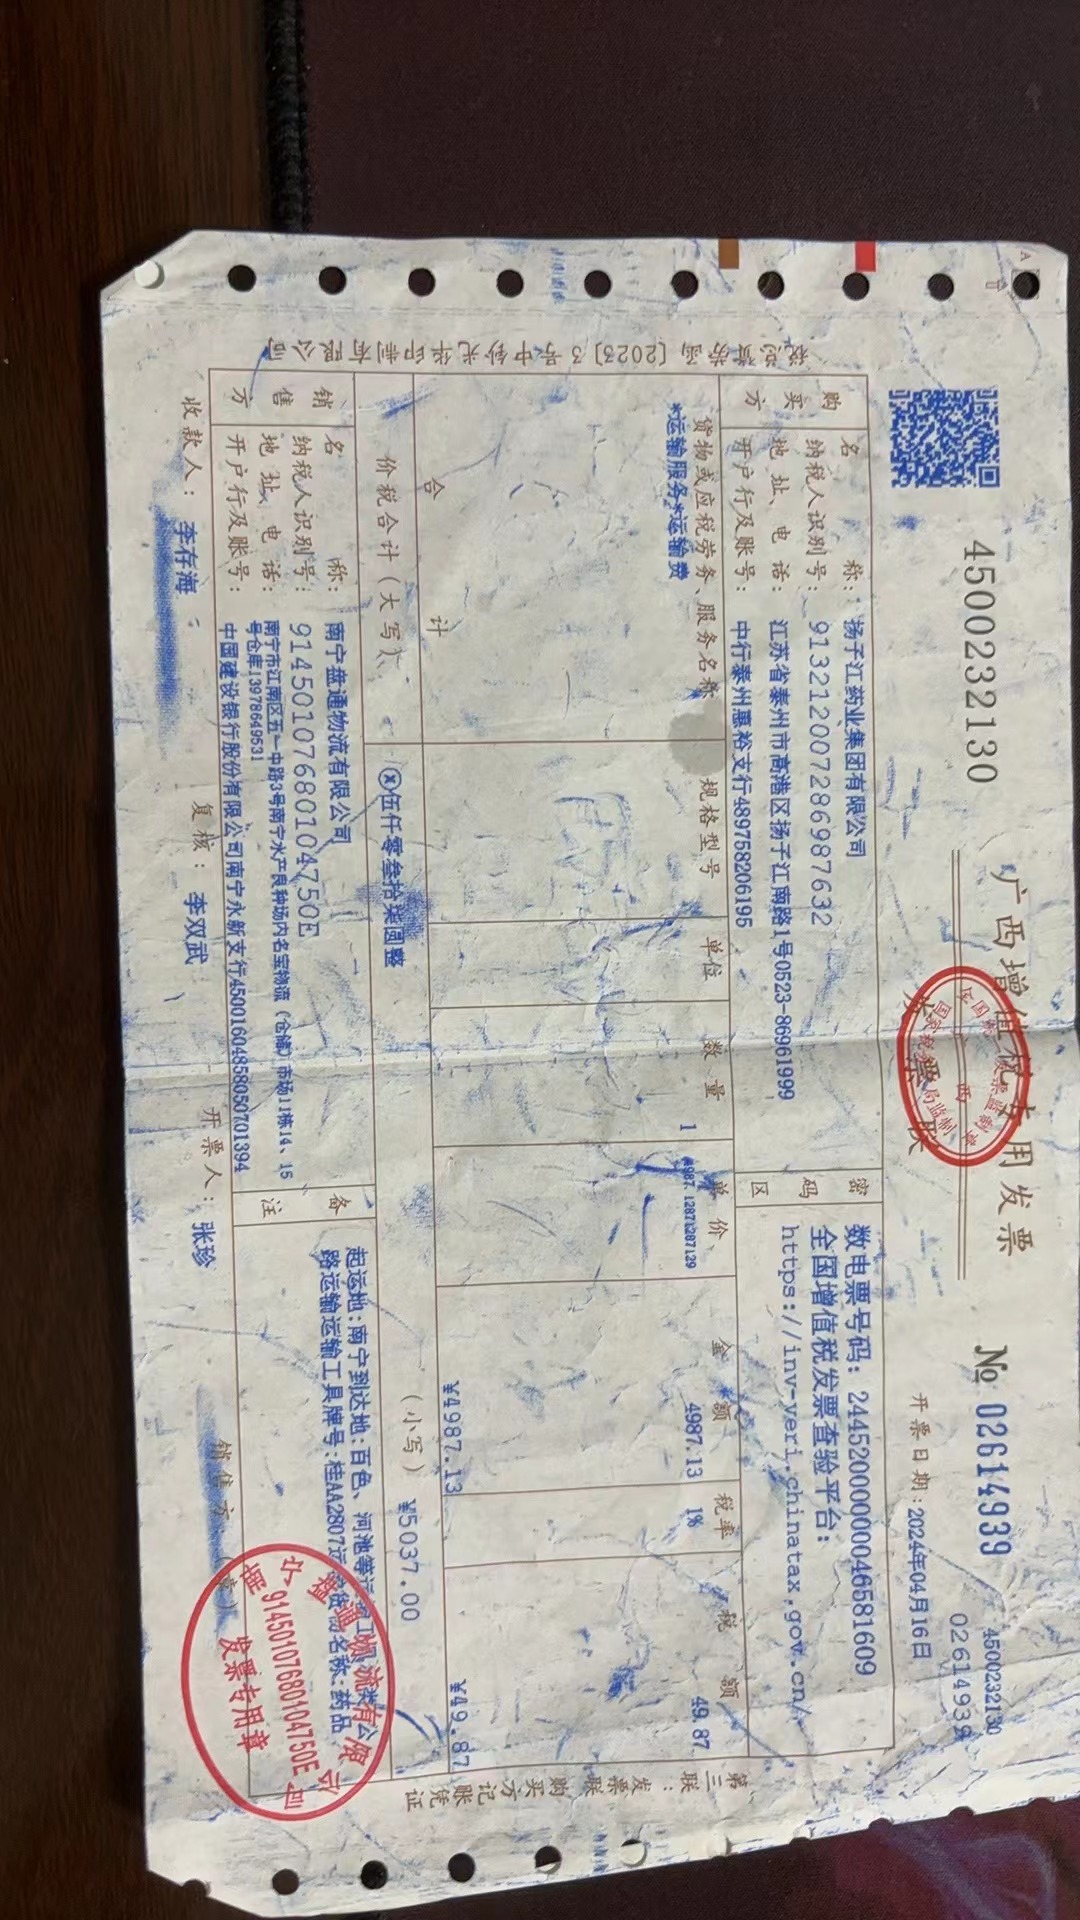 4500232130
广西增值税专用发票
发票联
№ 02614939
4500232130
02614939
开票日期:2024年04月16日
税总货劳函〔2023〕3号中钞光华印制有限公司
购买方
名 称:扬子江药业集团有限公司
纳税人识别号:913212007286987632
地址、电话:江苏省泰州市高港区扬子江南路1号0523-86961999
开户行及账号:中行泰州惠裕支行489758206195
密码区
数电票号码:24452000000046581609
全国增值税发票查验平台:
https://inv-veri.chinatax.gov.cn/
货物或应税劳务、服务名称 规格型号 单位 数量 单价 金额 税率 税额
*运输服务*运输费 1 4987.12871287129 4987.13 1% 49.87
合计 ¥4987.13 ¥49.87
价税合计(大写) ⊗伍仟零叁拾柒圆整 (小写) ¥5037.00
销售方
名 称:南宁盘通物流有限公司
纳税人识别号:91450107680104750E
地址、电话:南宁市江南区五一中路3号南宁水产良种场内名宝物流(仓储)市场11栋14、15
号仓库13978649531
开户行及账号:中国建设银行股份有限公司南宁永新支行45001604858050701394
备注
起运地:南宁到达地:百色、河池等
路运输运输工具牌号:桂AA2807 货物名称:药品
收款人:李存海
复核:李双武
开票人:张珍
销售方
91450107680104750E
发票专用章
第三联:发票联 购买方记账凭证